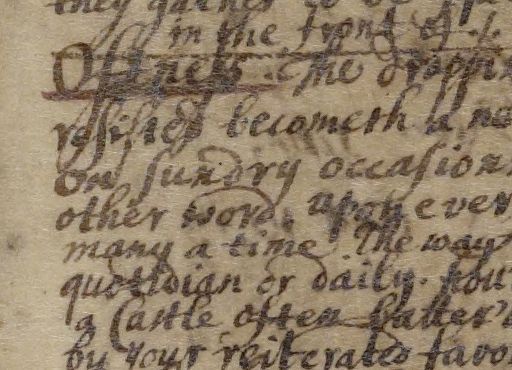 they gather to be
in the front of
Oftness. The droppin
resisted becometh a ne
On sundry occasions
other word, upon ever
many a time. The way
quotidian or daily. hou
a Castle often batter'd
by your reiterated favo